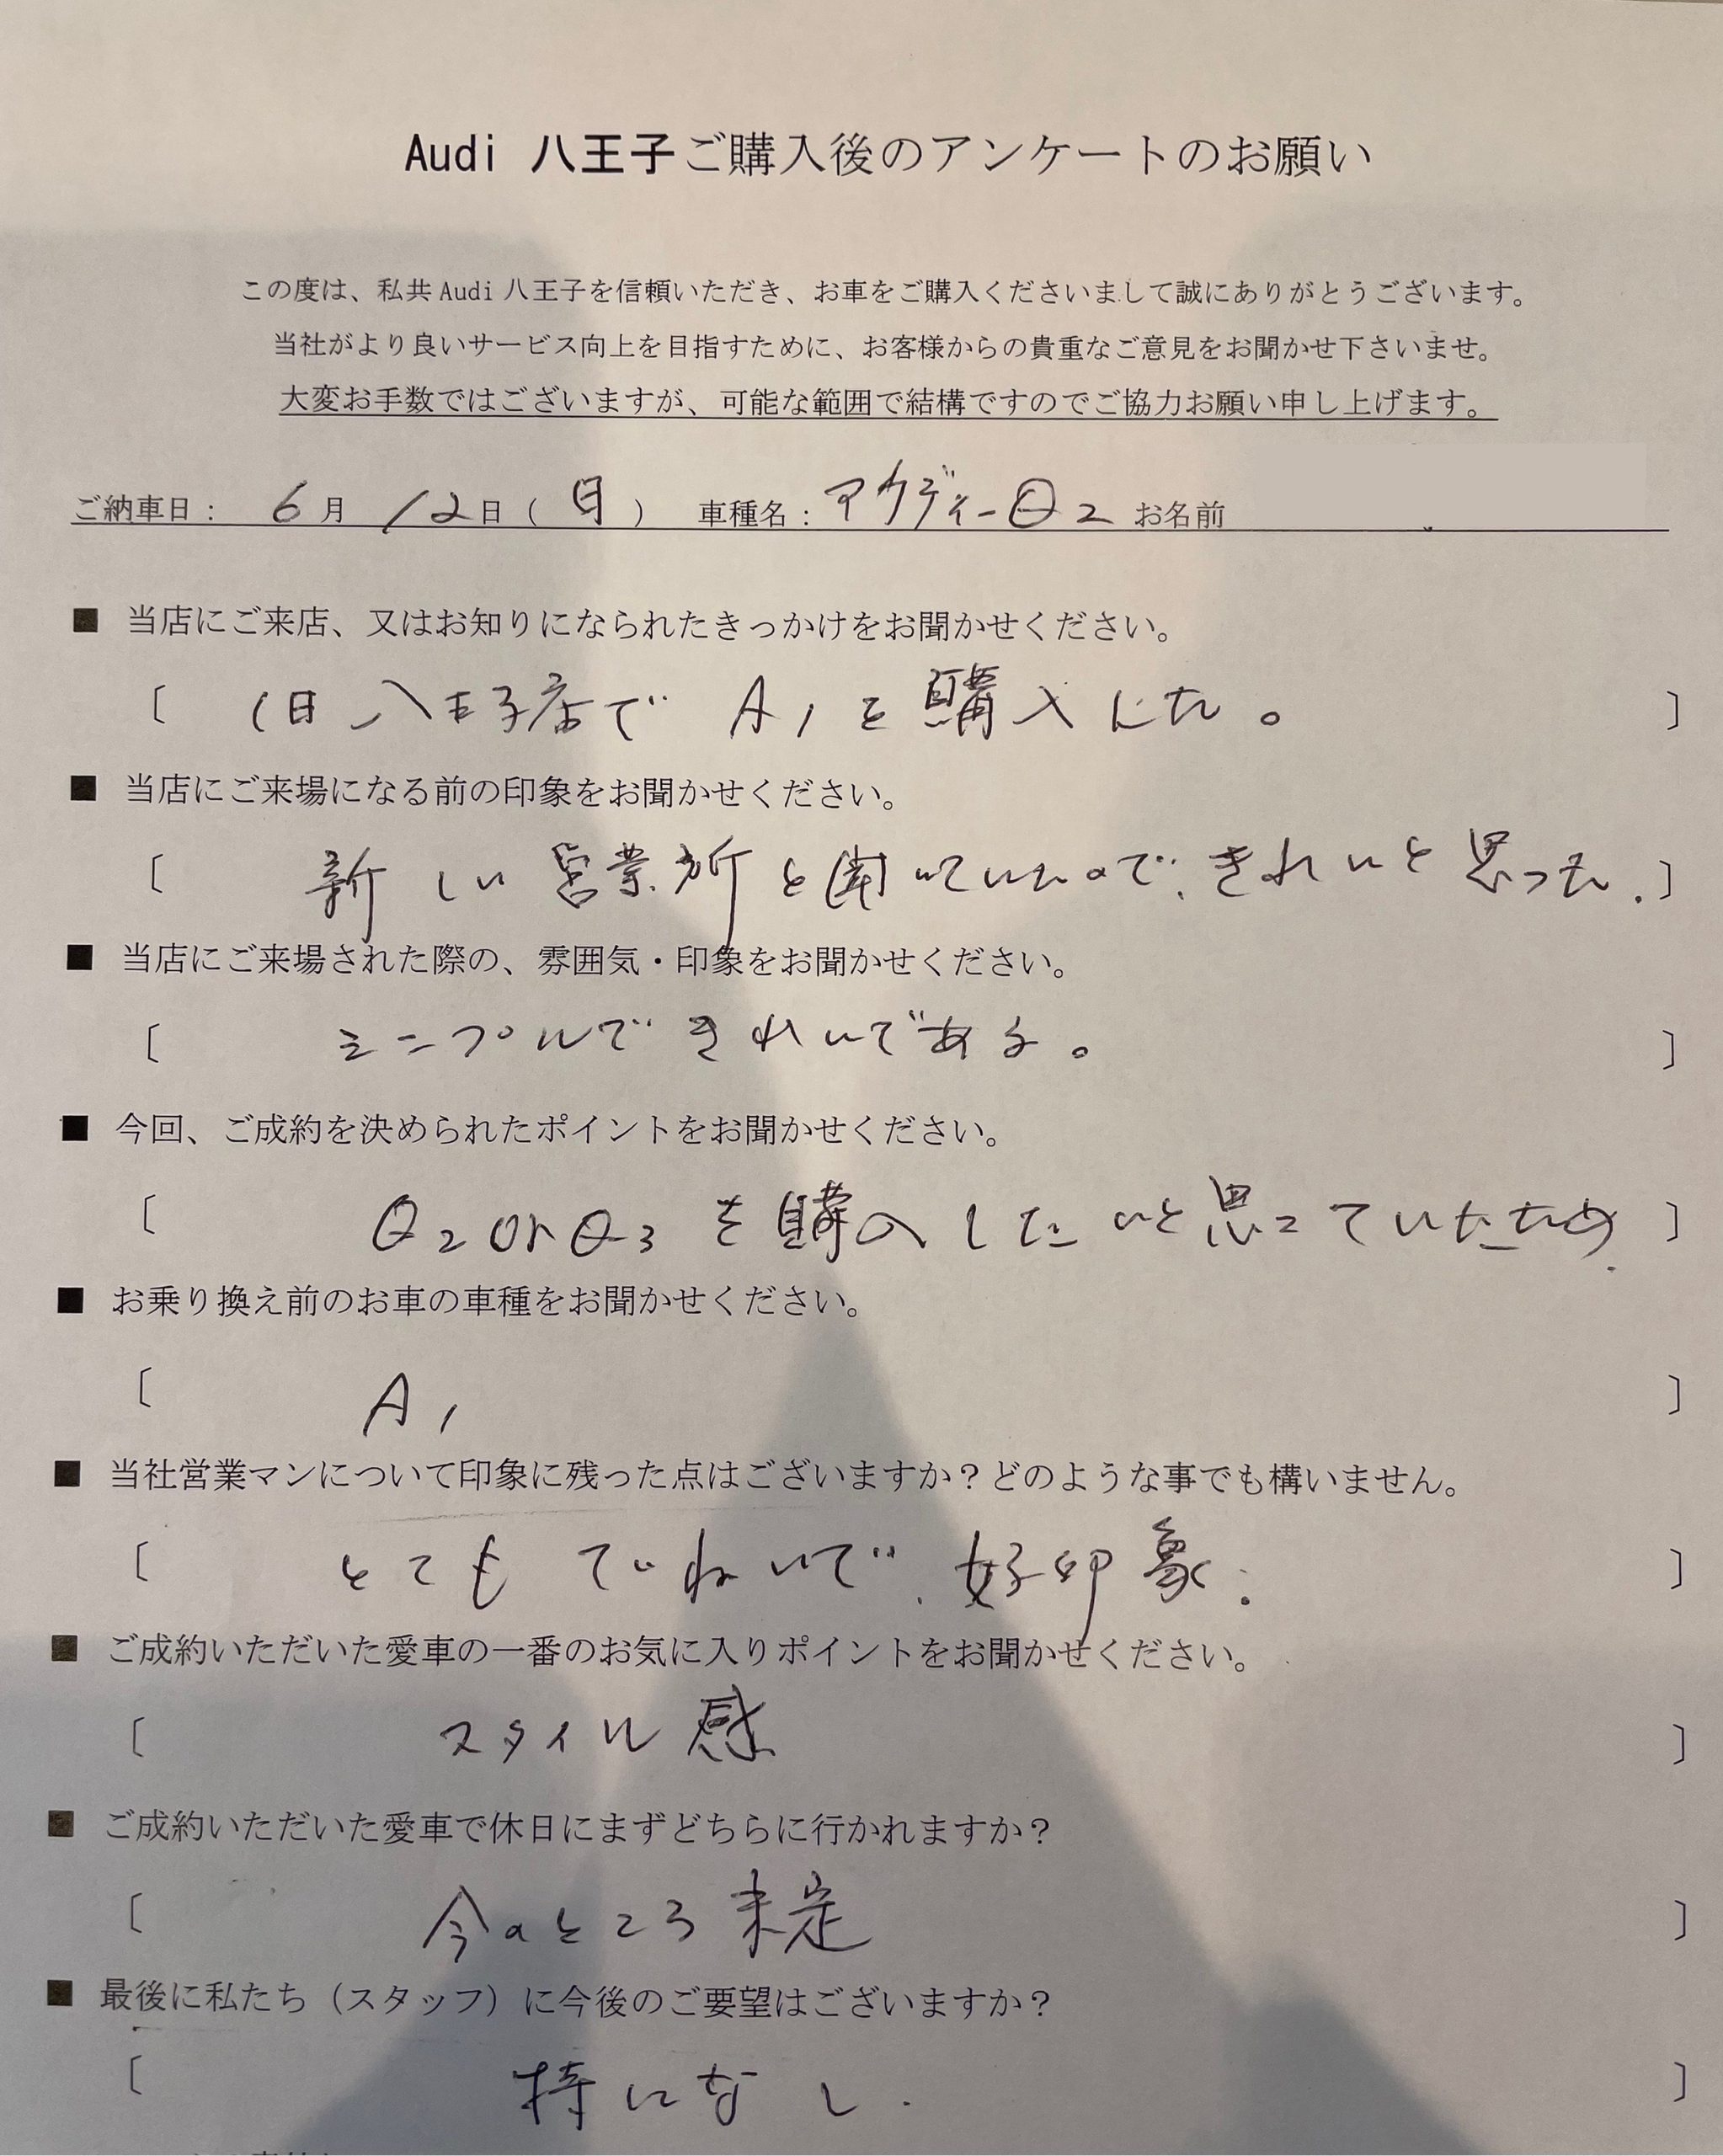 Audi 八王子ご購入後のアンケートのお願い
この度は、私共 Audi 八王子を信頼いただき、お車をご購入くださいまして誠にありがとうございます。
当社がより良いサービス向上を目指すために、お客様からの貴重なご意見をお聞かせ下さいませ。
大変お手数ではございますが、可能な範囲で結構ですのでご協力お願い申し上げます。
ご納車日： 6月 12日（ 日 ） 車種名：アウディーQ2 お名前
■ 当店にご来店、又はお知りになられたきっかけをお聞かせください。
〔 旧八王子店で A1を購入した。 〕
■ 当店にご来場になる前の印象をお聞かせください。
〔 新しい営業所と聞いていたので、きれいと思った. 〕
■ 当店にご来場された際の、雰囲気・印象をお聞かせください。
〔 シンプルできれいである。 〕
■ 今回、ご成約を決められたポイントをお聞かせください。
〔 Q2 or Q3 を購入したいと思っていたため. 〕
■ お乗り換え前のお車の車種をお聞かせください。
〔 A1 〕
■ 当社営業マンについて印象に残った点はございますか？どのような事でも構いません。
〔 とても ていねいで、好印象. 〕
■ ご成約いただいた愛車の一番のお気に入りポイントをお聞かせください。
〔 スタイル感 〕
■ ご成約いただいた愛車で休日にまずどちらに行かれますか？
〔 今のところ未定 〕
■ 最後に私たち（スタッフ）に今後のご要望はございますか？
〔 特になし. 〕